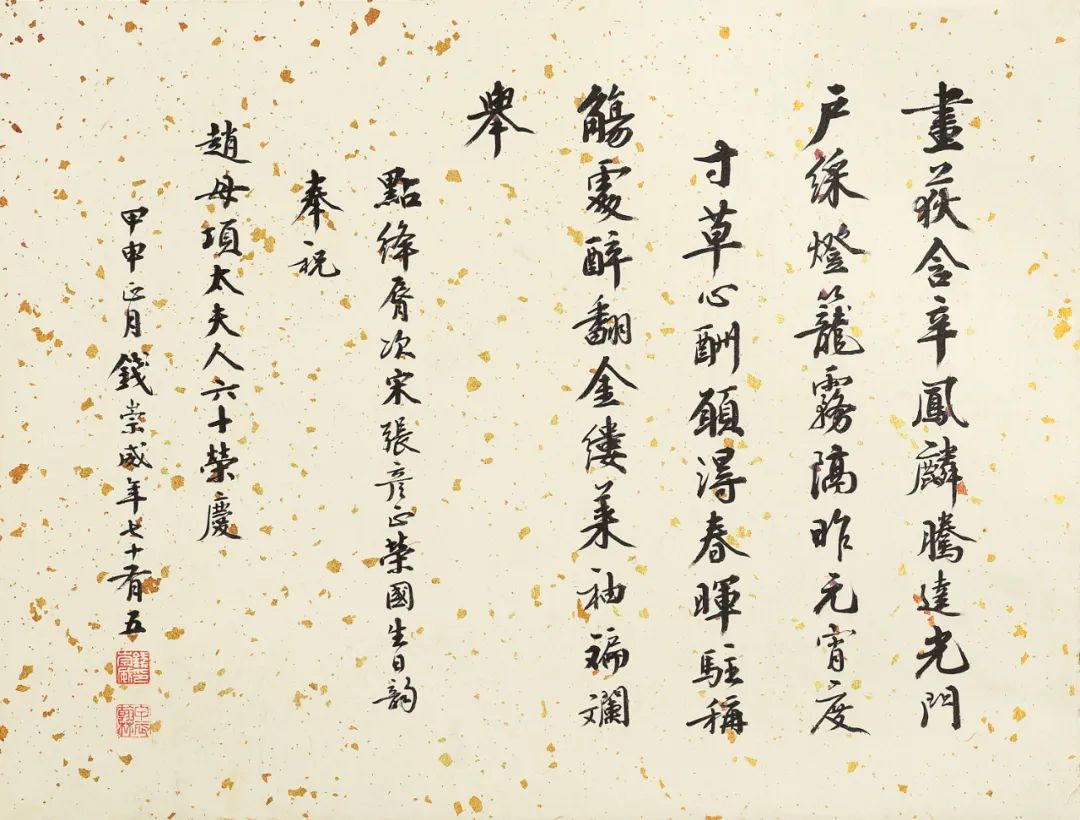 畫荻含辛鳳麟騰達光門
戶綵燈籠霧隔昨元宵度
寸草心酬願得春暉駐稱
觴處醉翻金縷萊袖斒斕
舉
點絳脣次宋張彥正榮國生日韵
奉祝
趙母項太夫人六十榮慶
甲申正月錢崇威年七十有五